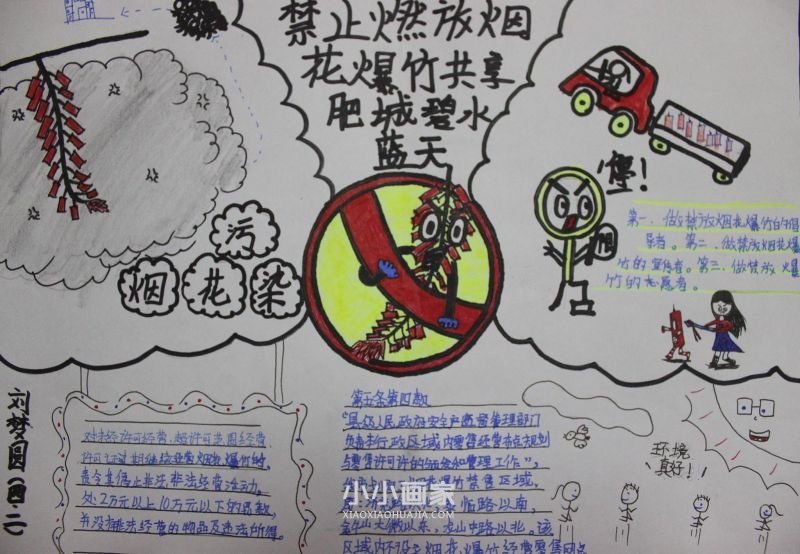 禁止燃放烟
花爆竹共享
肥城碧水
蓝天
污
烟花染
堡!
第一.做禁放烟花爆竹的倡
导者。第二.做禁放烟花爆
竹的宣传者。第三.做禁放爆
竹的志愿者。
刘梦圆(四.二)
对未经许可经营、超许可范围经营、
许可证过期继续经营烟花爆竹的,
责令其停止非法经营活动,
处2万元以上10万元以下的罚款,
并没收非法经营的物品及违法所得。
第五条第四款
"县级人民政府安全生产监督管理部门
负责本行政区域内零售经营布点规划
与零售许可证的颁发和管理工作",
禁售区域
临路以南,
以东,龙山中路以北,该
区域内不设烟花爆竹经营零售网点
环境
真好!
小小画家
XIAOXIAOHUAJIA.COM